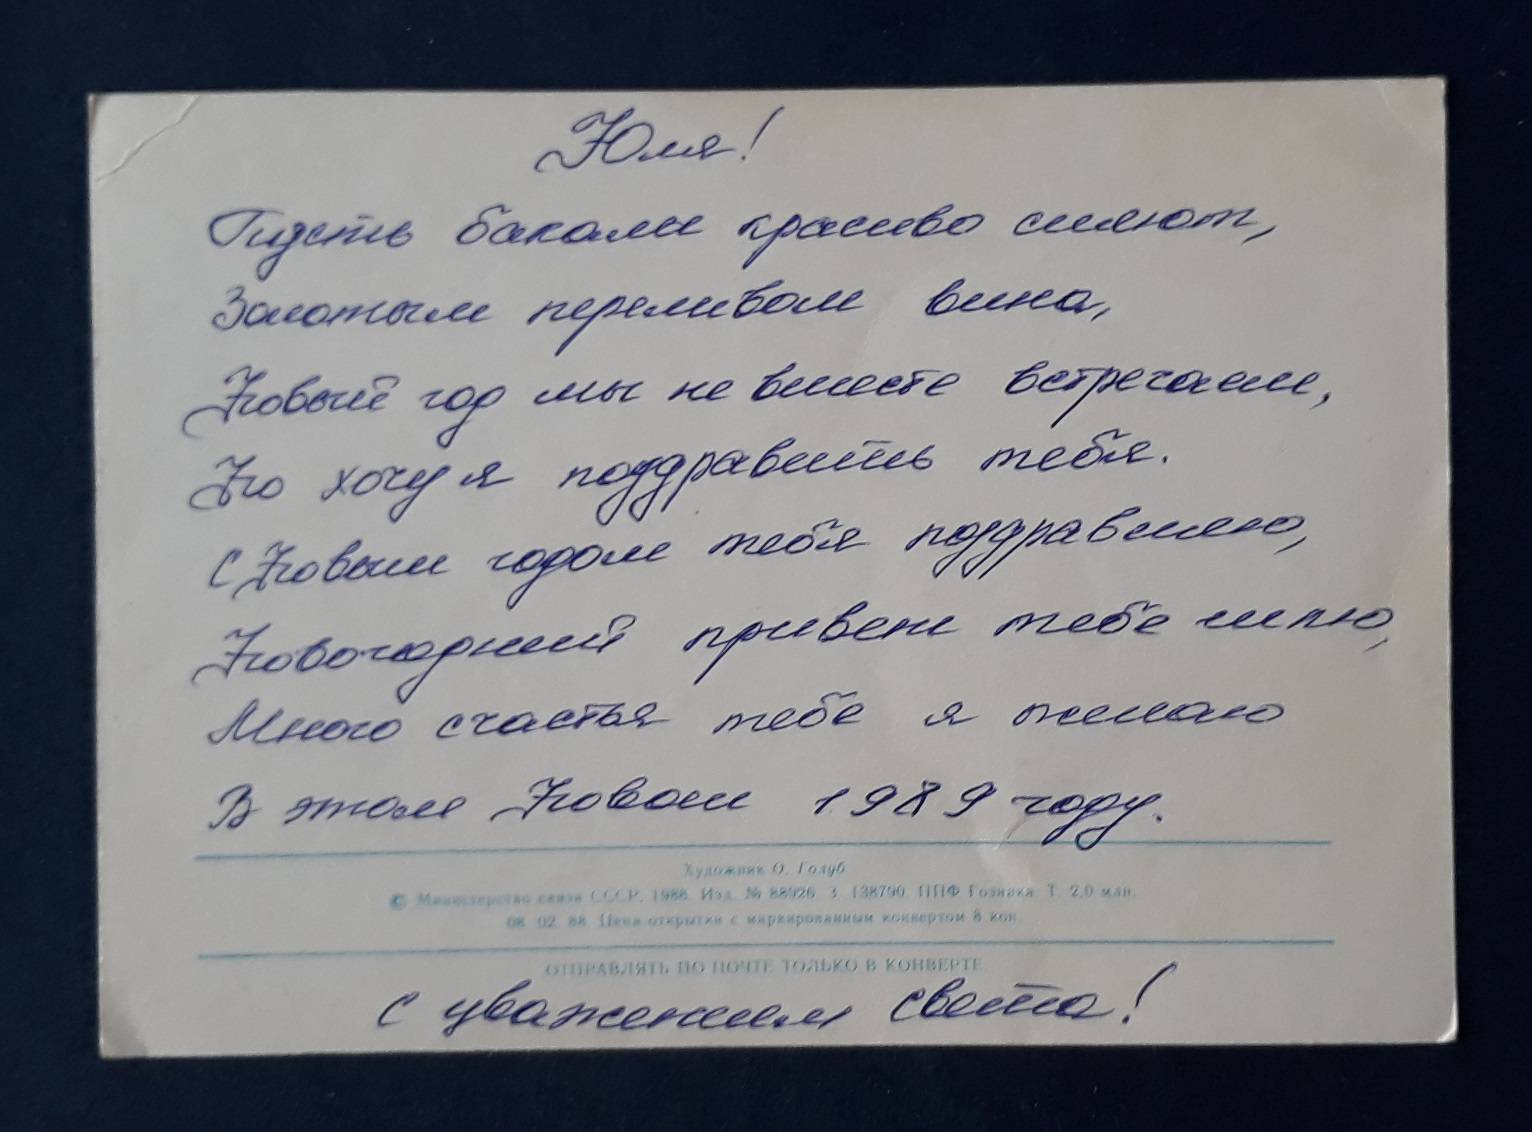 Юля!
Пусть бакалы красиво сияют,
Золотым переливом вина,
Новый год мы не вместе встречаем,
Но хочу я поздравить тебя.
С Новым годом тебя поздравляю,
Новогодний привет тебе шлю,
Много счастья тебе я желаю
В этом Новом 1989 году.
Художник О. Голуб
© Министерство связи СССР, 1988. Изд. № 88926. З. 138790. ППФ Гознака. Т. 2,0 млн.
08. 02. 88. Цена открытки с маркированным конвертом 8 коп.
ОТПРАВЛЯТЬ ПО ПОЧТЕ ТОЛЬКО В КОНВЕРТЕ
С уважением Света!